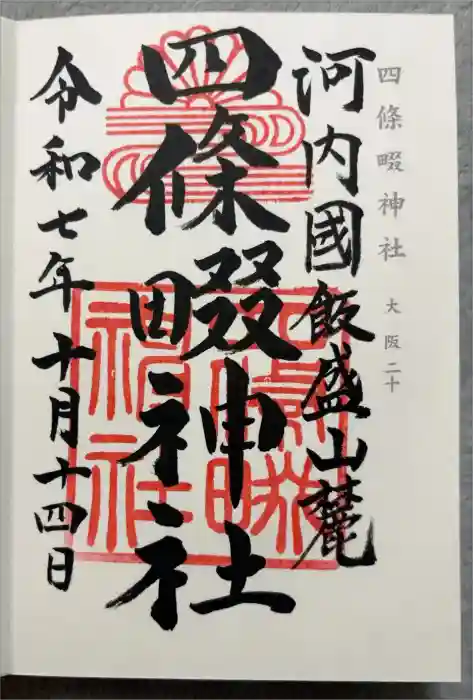 四條畷神社 大阪二十
河内國飯盛山麓
四條畷神社
令和七年十月十四日
四條畷
神社